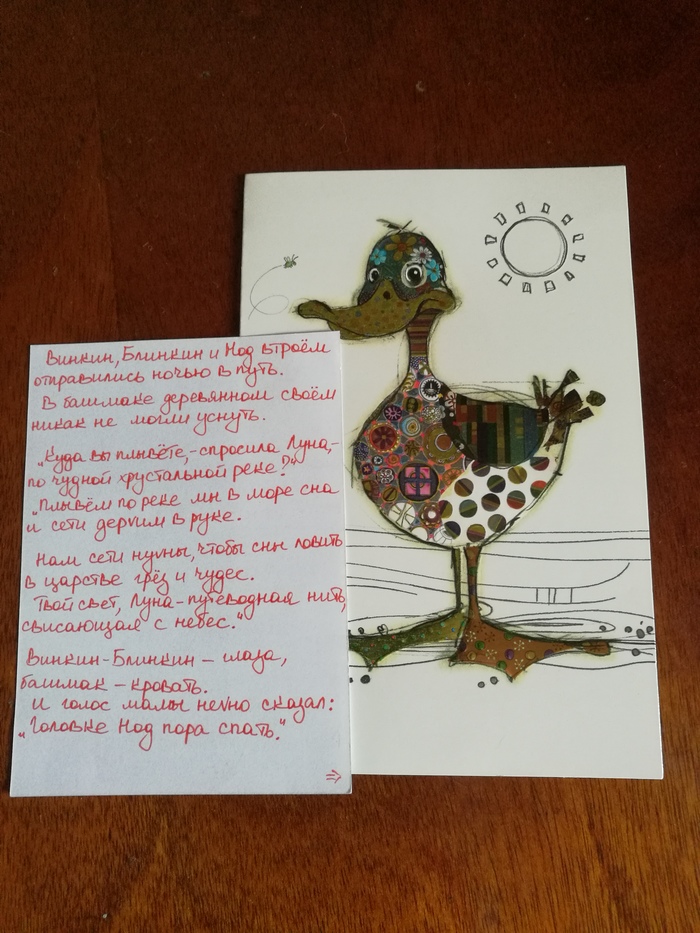 Винкин, Блинкин и Нод втроём
отправились ночью в путь.
В башмаке деревянном своём
никак не могли уснуть.
"Куда вы плывёте,- спросила Луна,-
по чудной хрустальной реке?"
"Плывём по реке мы в море сна
и сети держим в руке.
Нам сети нужны, чтобы сны ловить
в царстве грёз и чудес.
Твой свет, Луна - путеводная нить,
свисающая с небес."
Винкин-Блинкин - глаза,
башмак - кровать.
И голос мамы нежно сказал:
"Головке Нод пора спать."
⇒